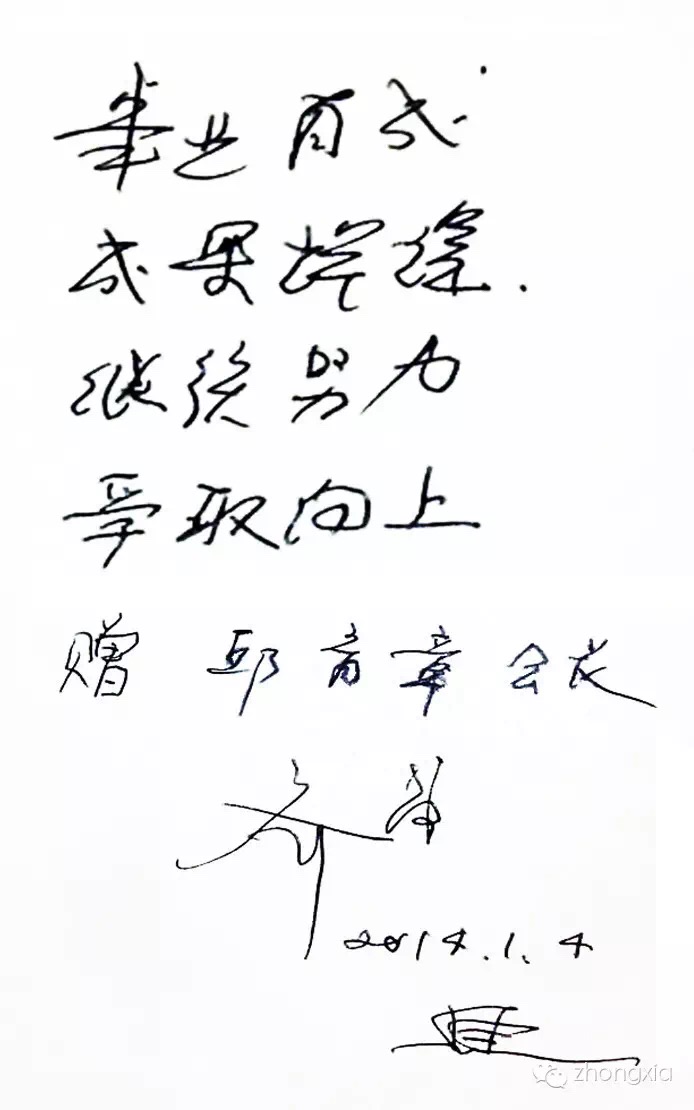 事业有成
成果
继续努力
争取向上
赠 邱育章会长
2014.1.4
zhongxia